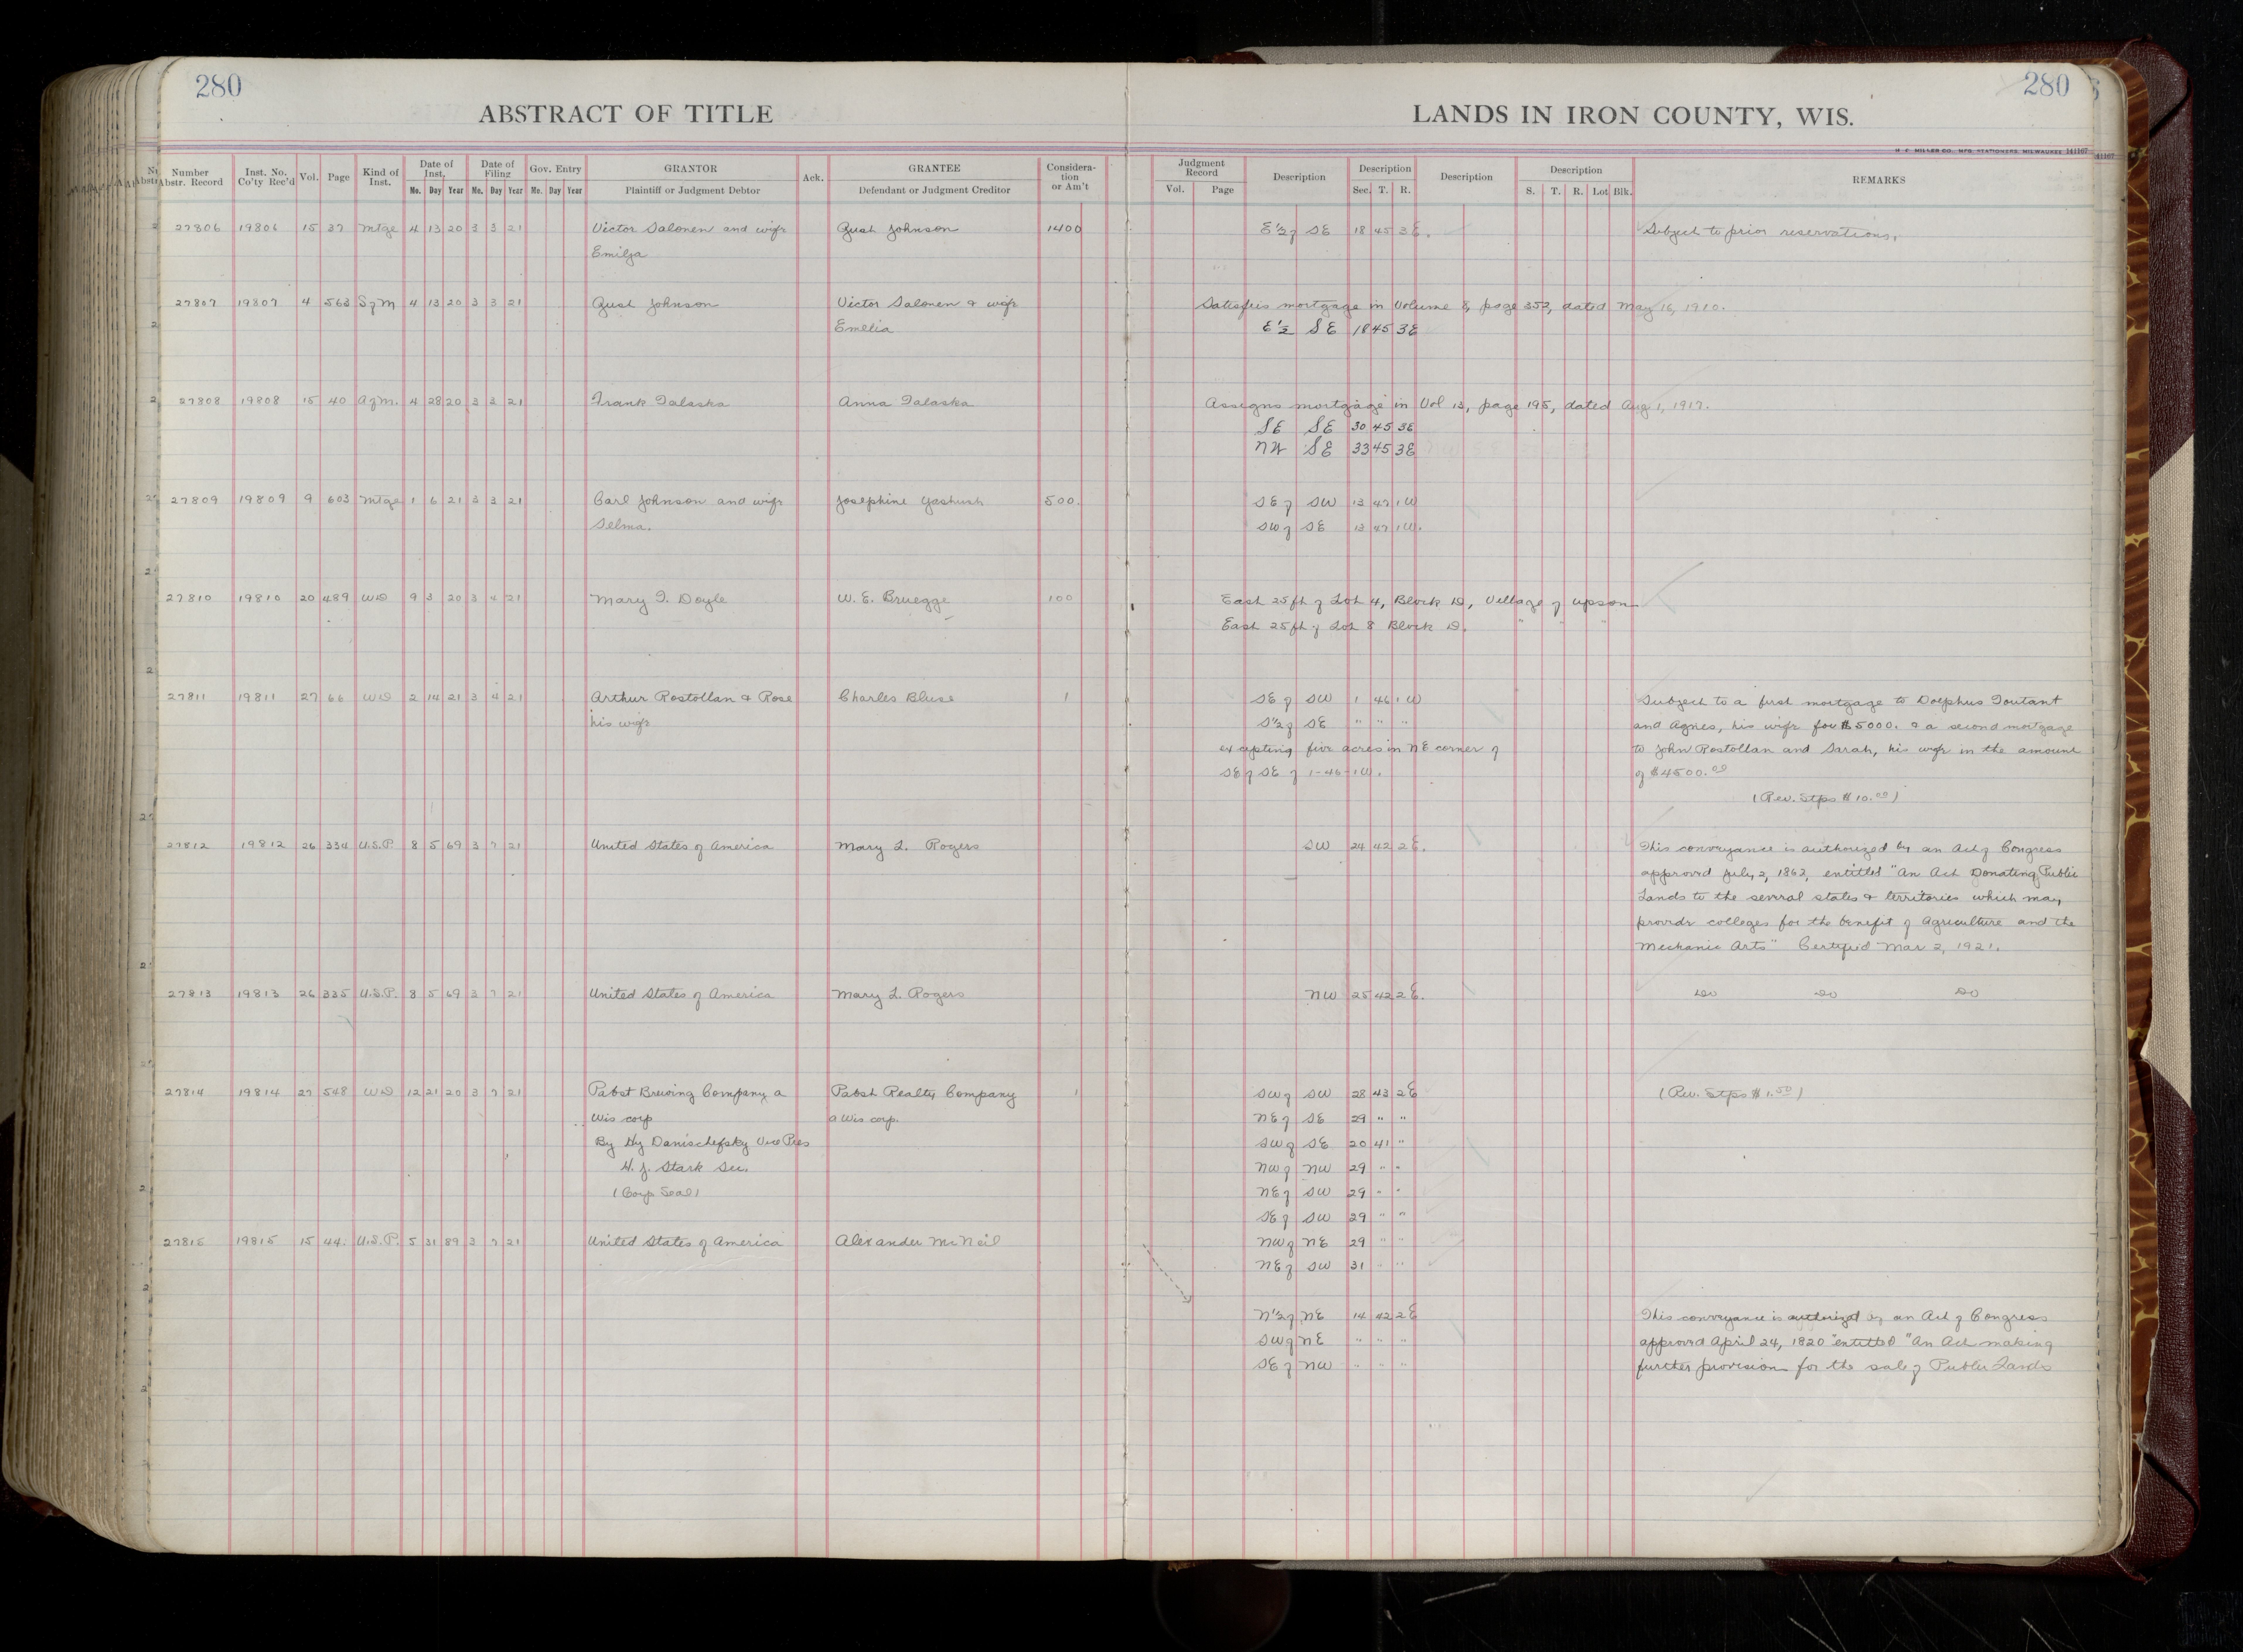 280
280
ABSTRACT OF TITLE
LANDS IN IRON COUNTY, WIS.
H. F. MILLER CO., MFG. STATIONERS, MILWAUKEE 141167
Number Abstr. Record Inst. No. Co'ty Rec'd Vol. Page Kind of Inst. Date of Inst. Date of Filing Gov. Entry GRANTOR Ack. GRANTEE Consideration or Am't Judgment Record Description Description Description Description REMARKS
Mo. Day Year Mo. Day Year Mo. Day Year Plaintiff or Judgment Debtor Defendant or Judgment Creditor Vol. Page Sec. T. R. S. T. R. Lot Blk.
27806 19806 15 37 Mtge 4 13 20 3 3 21 Victor Salonen and wife Gust Johnson 1400 E½ of SE 18 45 3E. Subject to prior reservations.
Emilja
27807 19807 4 563 S of M 4 13 20 3 3 21 Gust Johnson Victor Salonen & wife Satisfies mortgage in Volume 8, page 353, dated May 16, 1910.
Emelia E½ SE 18 45 3E
27808 19808 15 40 A of M. 4 28 20 3 3 21 Frank Talaska Anna Talaska Assigns mortgage in Vol 13, page 195, dated Aug 1, 1917.
SE SE 30 45 3E
NW SE 33 45 3E
27809 19809 9 603 Mtge 1 6 21 3 3 21 Carl Johnson and wife Josephine 500. SE of SW 13 47 1W
Selma. SW of SE 13 47 1W.
27810 19810 20 489 WD 9 3 20 3 4 21 Mary F. Doyle W. E. Bruegge 100 East 25 ft of Lot 4, Block D, Village of Upson
East 25 ft of Lot 8 Block D. " " "
27811 19811 27 66 WD 2 14 21 3 4 21 Arthur Rostollan & Rose Charles Bluse 1 SE of SW 1 46 1W Subject to a first mortgage to Dolphus Toutant
his wife S½ of SE " " " and Agnes, his wife for $5000. & a second mortgage
excepting five acres in NE corner of to John Rostollan and Sarah, his wife in the amount
SE of SE of 1-46-1W. of $4500.00
(Rev. Stps $10.00)
27812 19812 26 334 U.S.P. 8 5 69 3 7 21 United States of America Mary L. Rogers SW 24 42 2E. This conveyance is authorized by an Act of Congress
approved July 2, 1862, entitled "An Act Donating Public
Lands to the several states & territories which may
provide colleges for the benefit of Agriculture and the
Mechanic Arts" Certified Mar 2, 1921.
27813 19813 26 335 U.S.P. 8 5 69 3 7 21 United States of America Mary L. Rogers NW 25 42 2E. Do Do Do
27814 19814 27 548 WD 12 21 20 3 7 21 Pabst Brewing Company a Pabst Realty Company 1 SW of SW 28 43 2E (Rev. Stps $1.50)
Wis corp a Wis corp. NE of SE 29 " "
By Hy Danischefsky Vice Pres SW of SE 20 41 "
H. J. Stark Sec. NW of NW 29 " "
(Corp Seal) NE of SW 29 " "
SE of SW 29 " "
27815 19815 15 44. U.S.P. 5 31 89 3 7 21 United States of America Alexander McNeil NW of NE 29 " "
NE of SW 31 " "
N½ of NE 14 42 2E This conveyance is authorized by an Act of Congress
SW of NE " " " approved April 24, 1820 "entitled "An Act making
SE of NW " " " further provision for the sale of Public Lands